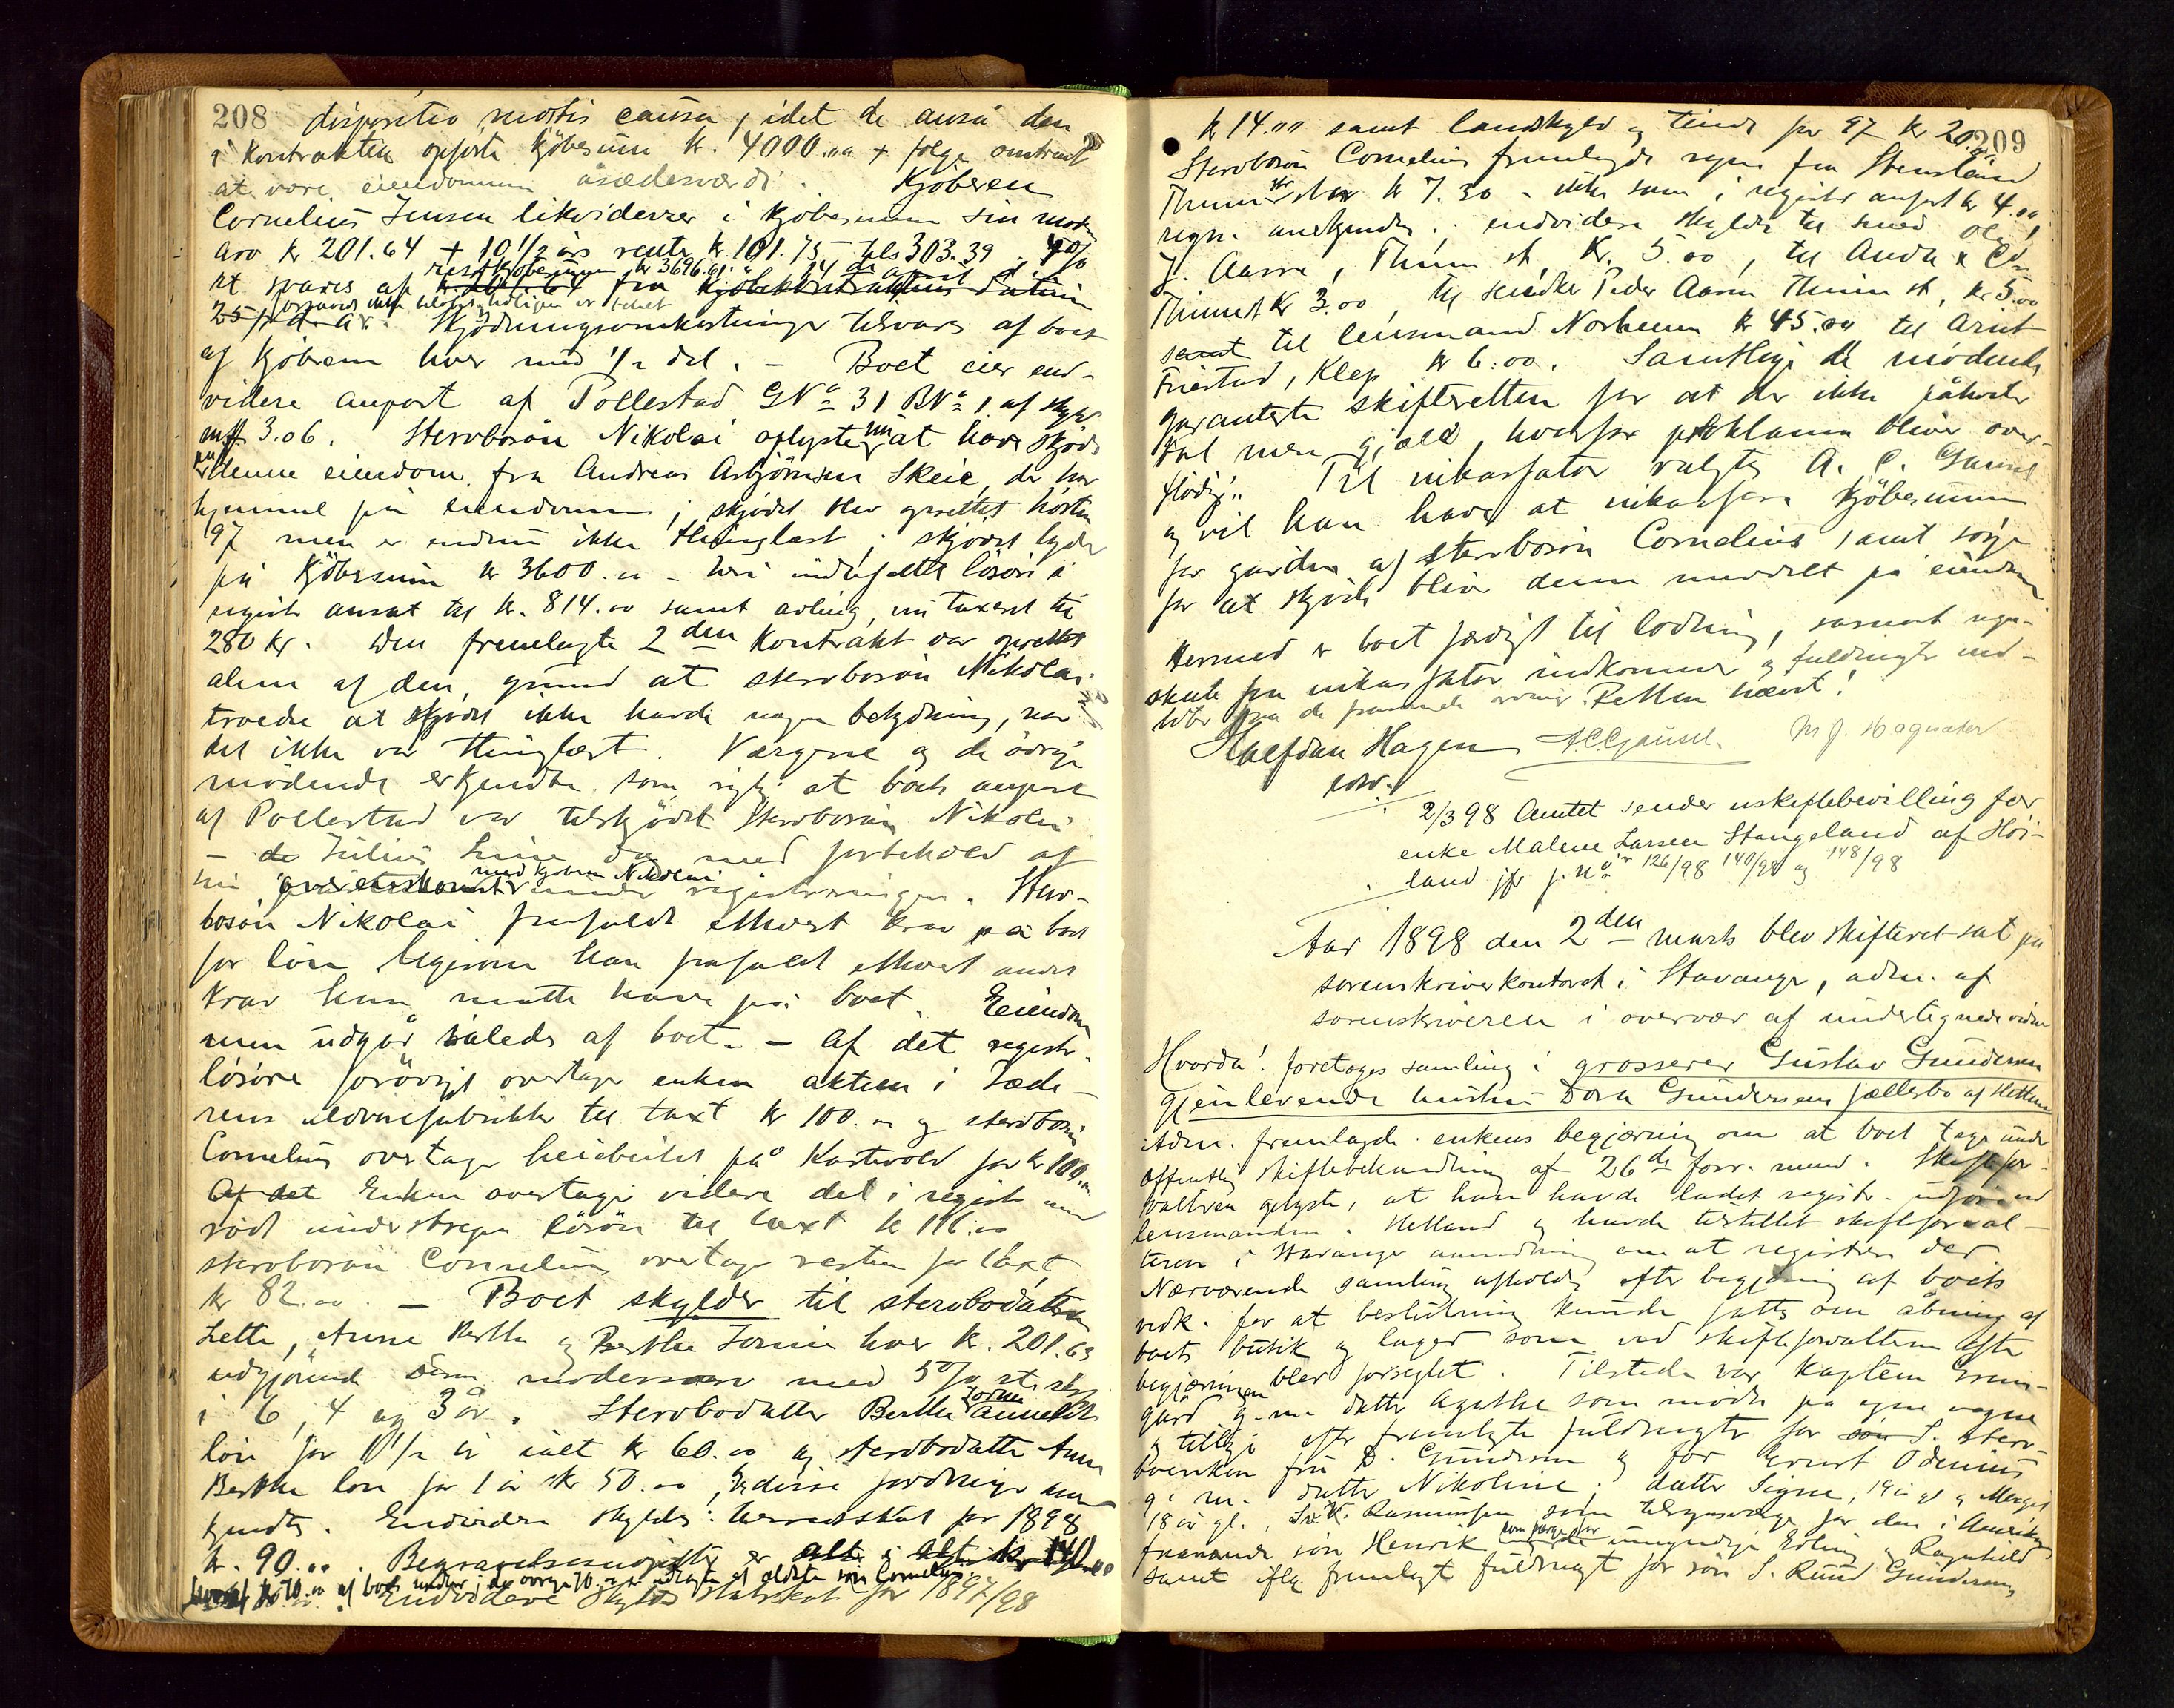 208 dispositio mortis causa, idet de anså den
i kontrakten opførte kjøbesum kr. 4000.00 + følge omtrent
at være eiendommen åsædesværdi. Kjøberen
Cornelius Jensen likviderer i kjøbesummen sin mødr.
arv kr 201.64 + 10 1/2 års rente kr. 101.75 tils 303.39. 4%
rt svares af restkjøbesummen kr 3696.61 fra kjøbekontraktens datum
Skjødningsomkostninger tilsvares af boet
af kjøberen hver med 1/2 del. - Boet eier end-
videre anpart af Pollestad GNo 31 BNo 1 af skyld
mk 3.06. Stervbosøn Nikolai oplyste nu at have skjøde
på denne eiendom fra Andreas Asbjørnsen Skeie, der har
hjemmel på eiendommen; skjødet blev oprettet høsten
97 men er endnu ikke thinglæst; skjødet lyder
på kjøbesum kr 3600.00 - heri indbefattet løsøre i
registr ansat til kr. 814.00 samt avling, nu taxeret til
280 kr. Den fremlagte 2den kontrakt var oprettet
alene af den grund at stervbosøn Nikolai
troede at skjødet ikke havde nogen betydning, når
det ikke var thinglæst. Værgerne og de øvrige
mødende erkjendte som rigtig at boets anpart
af Pollestad var tilskjødet stervbosøn Nikolai
- do Julius Seine da med forbehold af
sin med kjøberen Nikolai under registreringen. Sterv-
bosøn Nikolai frafaldt ethvert krav på boet
for løn ligesom han frafaldt ethvert andet
krav han måtte have på boet. Eiendom
men udgår således af boet. - Af det registr.
løsøre forøvrigt overtager enken aktien i Jæde-
rens uldvarefabrikker til taxt kr 100.00 og stervbosøn
Cornelius overtager heiebeitet på Kartevold for kr 100.00
Af det Enken overtager videre det i registr med
rødt understregede løsøre til taxt kr 116.00
stervbosøn Cornelius overtager resten for taxt
kr 82.00. - Boet skylder til stervbodøttrene
Lette, Anne Berthe og Berthe Jorine hver kr. 201.63
udgjørende dem mødrenearv med 5% rt. resp.
i 6, 4 og 3 år. Stervbodatter Berthe Jorine anmeldte
løn for 1 1/2 år ialt kr 60.00 og stervbodatter Anne
Berthe løn for 1 år kr 50.00, disse fordringer aner
kjendtes. Endvidere skyldes: herredsskat for 1898
kr. 90.00. Begravelsesudgifter er alt i alt kr 140.00
hvoraf kr 70.00 af boet under, de øvrige 70.00 er udlagte af ældste søn Cornelius
Endvidere skyldes statsskat for 1897/98
209
kr 14.00 samt landskyld og tiende for 97 kr 20.00
Stervbosøn Cornelius fremlagde regn. fra Stensland
Thime str kr 7.30 - ikke som i registr anført kr 4.00
regn. anerkjendes. endvidere skyldes til smed Ole
J. Aasre, Thime st. Kr. 5.00, til Anda & Co
Thime st Kr 3.00, til snedker Peder Aasre Thime st, kr 5.00
samt til lensmand Norheim kr 45.00 til Arnt
Friestad, Klep kr 6.00. Samtlige de mødende
garanterte skifteretten for at der ikke påhviler
boet mere gjæld, hvorfor proklama bliver over-
flødig. Til inkassator valgtes A. C. Gausel
og vil han have at inkassere kjøbesummen
for gården af stervbosøn Cornelius samt sørge
for at skjøde bliver denne meddelt på eiendom
Hermed er boet færdigt til lodning, såsnart regn-
skab fra inkassator indkommer og fuldmagter ind-
løber fra de fraværende arvinger. Retten hævet!
Halfdan Hagen ACGausel. M J. Hognestad
sosv.
2/3 98 Amtet sender uskiftebevilling for
enke Malene Larsen Stangeland af Høi-
land jfr j. No 126/98 140/98 og 148/98
Aar 1898 den 2den marts blev skifteret sat på
sorenskriverkontoret i Stavanger, adm. af
sorenskriveren i overvær af undertegnede vidner
Hvorda! foretoges samling i grosserer Gustav Gundersen
gjenlevende hustru Dora Gundersens fællesbo af Hetland
Adm. fremlagde enkens begjæring om at boet tages under
offentlig skiftebehandling af 26de forr. måned. Skiftefor-
valteren oplyste, at han havde ladet registr. udføre ved
lensmanden i Hetland og havde tilstillet skifteforval-
teren i Stavanger anmodning om at registrere der
Nærværende samling afholdes efter begjæring af boets
vedk. for at beslutning kunde fattes om åbning af
boets butik og lager som ved skifteforvalteren efter
begjæringen blev forseglet. Tilstede var Kaptein Grim-
gård g. m. datter Agathe som mødte på egne vegne
og tillige efter fremlagte fuldmagter for søn S. sterv-
boenken fru D. Gundersen og for Ernst Odenius
g. m. datter Nikoline; datter Signe, 19 år gl. og Margit
18 år gl., Sv. K. Rasmussen som tilsynsværge for den i Amerika
fraværende søn Henrik som værge for umyndige Erling og Ragnhild
samt iflg fremlagt fuldmagt for søn S. Ruud Gundersen